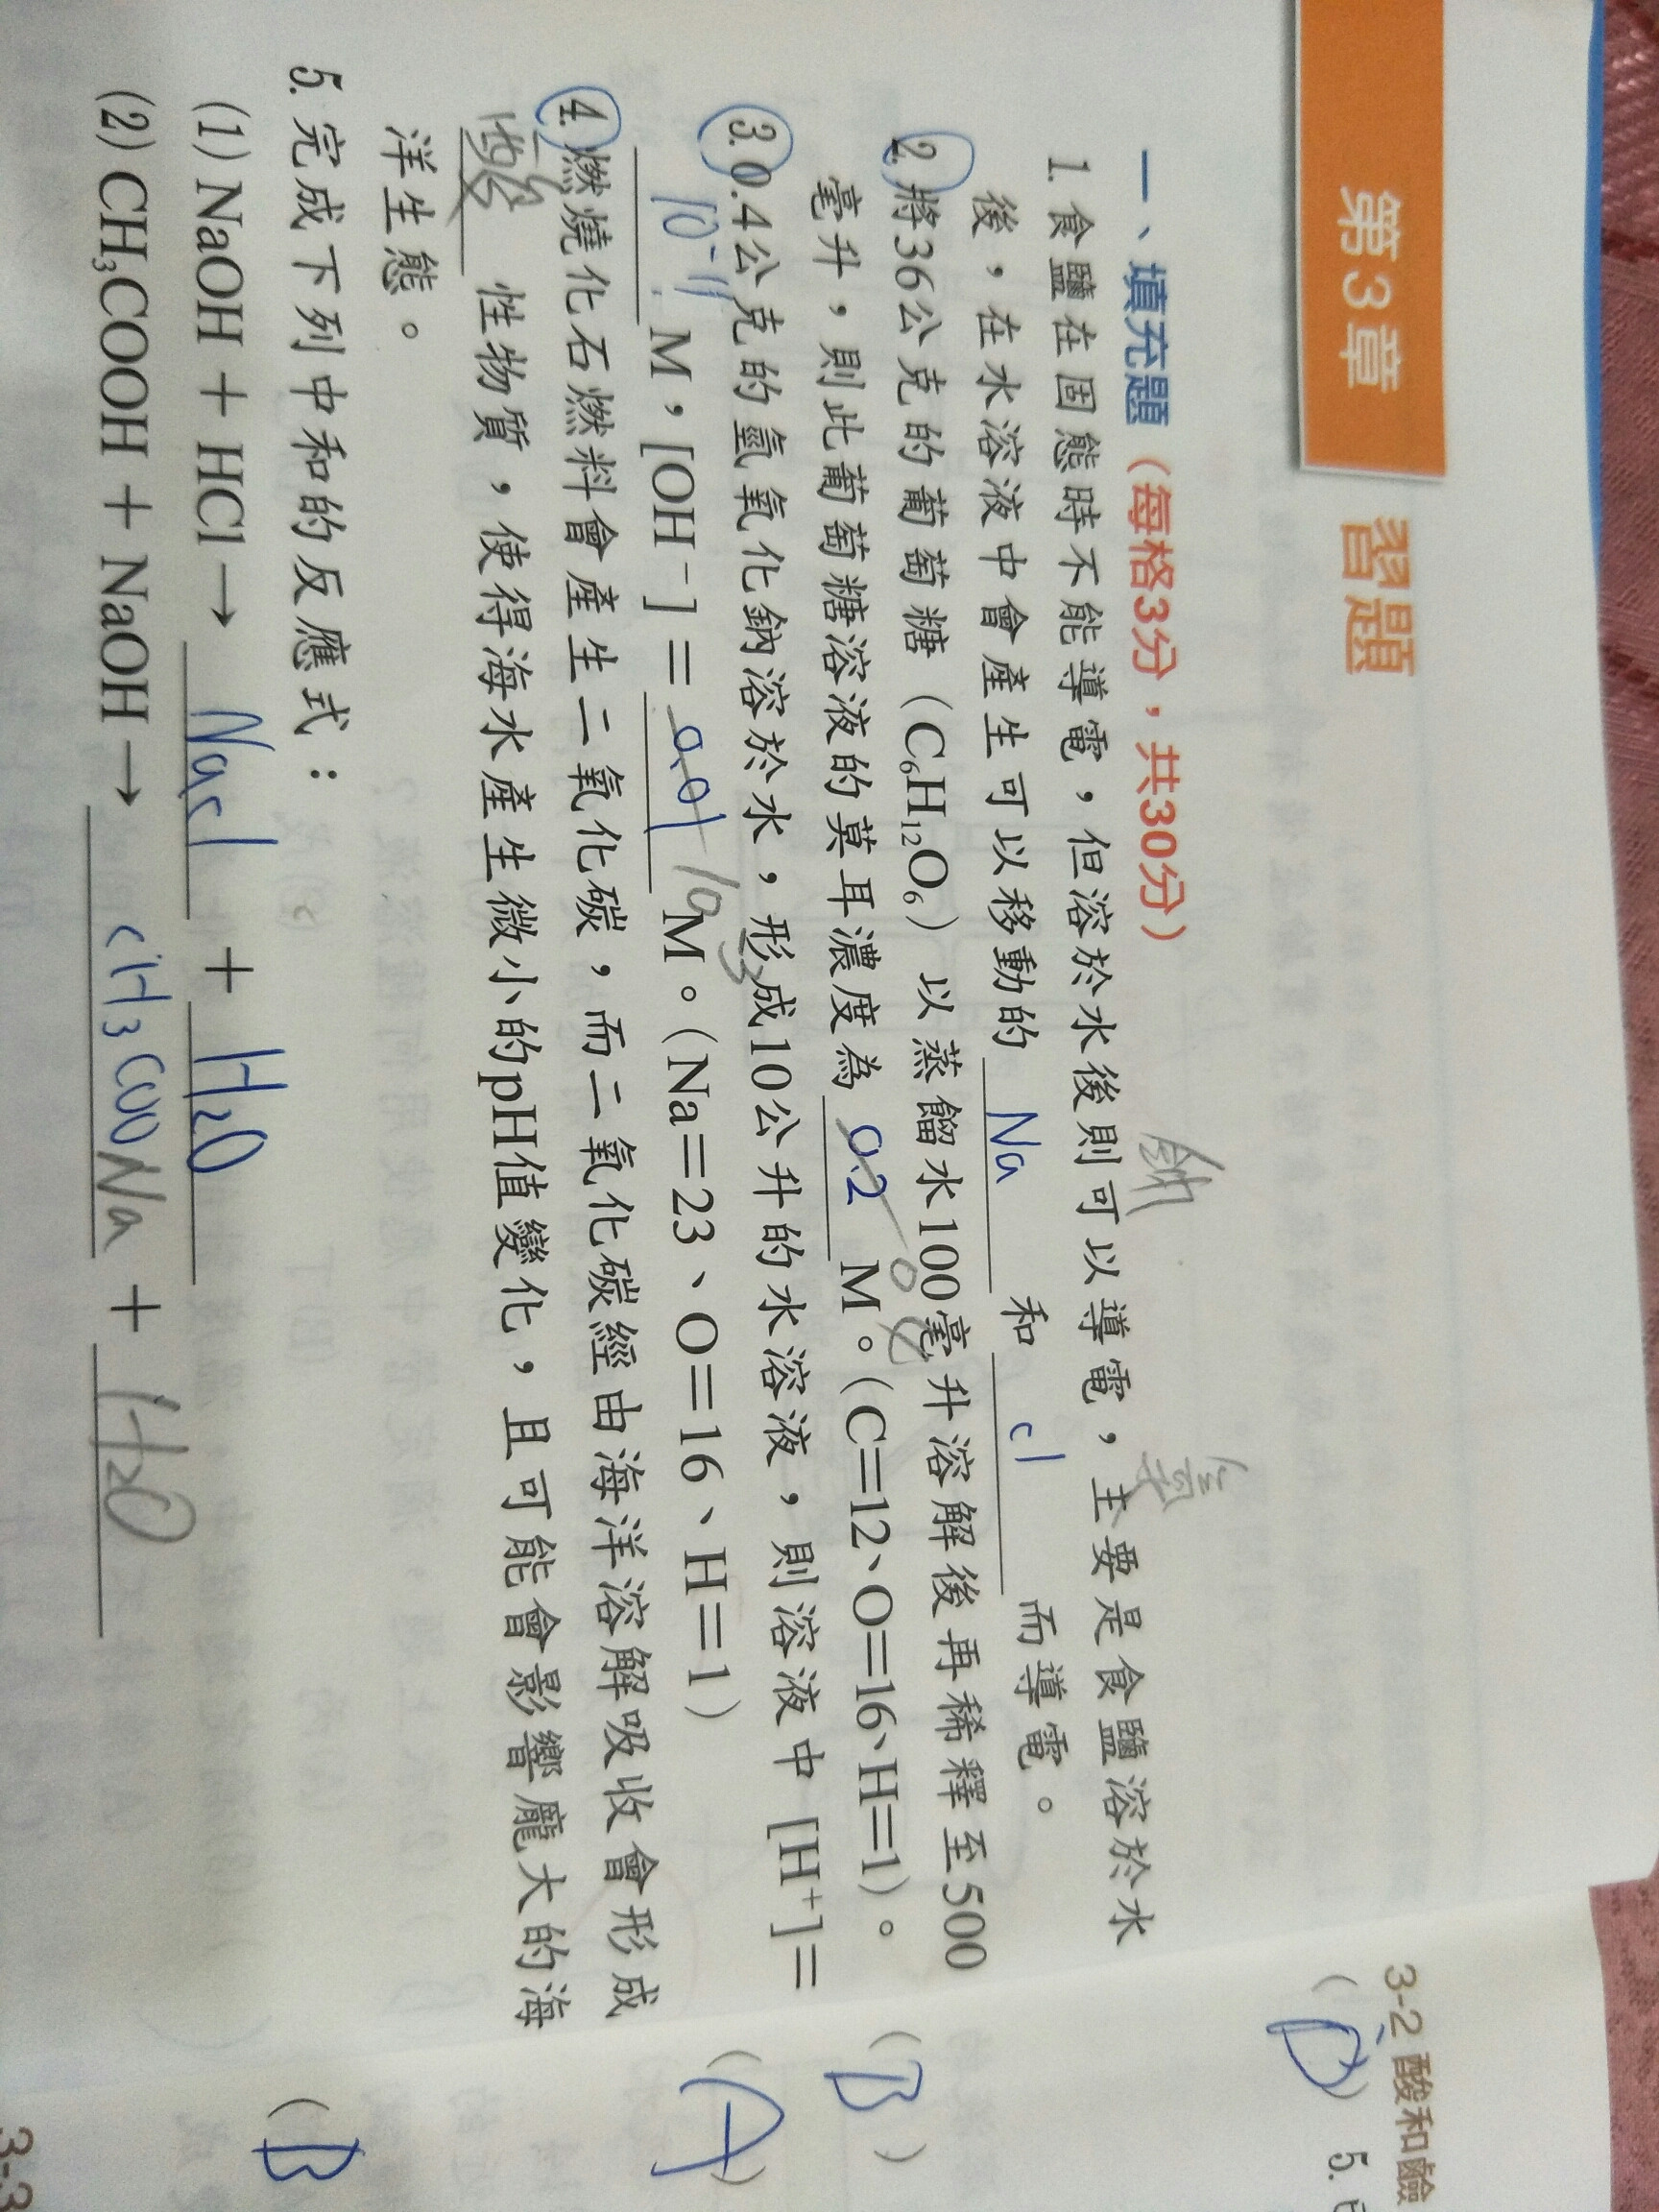 第3章 習題
一、填充題（每格3分，共30分）
鈉 氯
1. 食鹽在固態時不能導電，但溶於水後則可以導電，主要是食鹽溶於水
後，在水溶液中會產生可以移動的 Na 和 cl 而導電。
2. 將36公克的葡萄糖（C₆H₁₂O₆）以蒸餾水100毫升溶解後再稀釋至500
毫升，則此葡萄糖溶液的莫耳濃度為 0.2 M。(C=12、O=16、H=1)。
3. 0.4公克的氫氧化鈉溶於水，形成10公升的水溶液，則溶液中 [H⁺]=
10⁻¹¹ M，[OH⁻]= 0.01 M。(Na=23、O=16、H=1)
4. 燃燒化石燃料會產生二氧化碳，而二氧化碳經由海洋溶解吸收會形成
酸 性物質，使得海水產生微小的pH值變化，且可能會影響龐大的海
洋生態。
5. 完成下列中和的反應式：
(1) NaOH + HCl → Nacl + H₂O
(2) CH₃COOH + NaOH → cH₃COONa + H₂O
3-2 酸和鹼
(D) 5.
(B)
(A)
(B
3-3